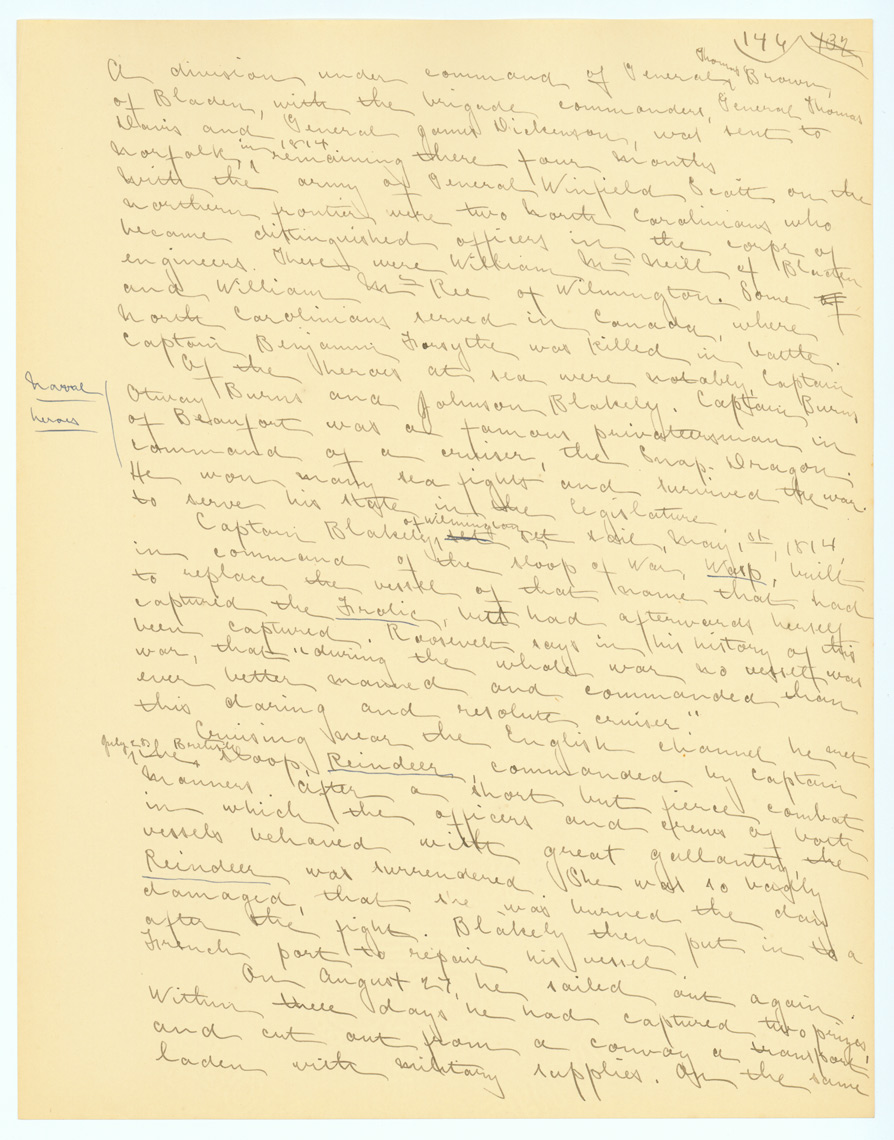 144 132
A division under command of General Thomas Brown,
of Bladen, with the brigade commanders, General Thomas
Davis and General James Dickenson, was sent to
Norfolk, in 1814 remaining there four months
With the army of General Winfield Scott on the
northern frontier were two North Carolinians who
became distinguished officers in the corps of
engineers. These were William McNeill of Bladen
and William McRee of Wilmington. Some of
North Carolinians served in Canada, where
Captain Benjamin Forsythe was killed in battle.
Of the heroes at sea were notably, Captain
Naval
heroes
Otway Burns and Johnson Blakely. Captain Burns
of Beaufort was a famous privateersman in
command of a cruiser, the Snap-Dragon.
He won many sea fights and survived the war
to serve his state in the legislature.
Captain Blakely, of Wilmington set sail, May, 1st, 1814,
in command of the sloop of War, Wasp, built
to replace the vessel of that name that had
captured the Frolic, but had afterwards herself
been captured. Roosevelt says in his history of this
war, that "during the whole war no vessel was
ever better manned and commanded than
this daring and resolute cruiser"
Cruising near the English channel he met
July 28 the British sloop, Reindeer, commanded by Captain
Manners after a short but fierce combat
in which the officers and crews of both
vessels behaved with great gallantry, the
Reindeer was surrendered. She was so badly
damaged, that she was burned the day
after the fight. Blakely then put in to a
French port to repair his vessel.
On August 27, he sailed out again.
Within three days he had captured two prizes,
and cut out from a convoy a transport
laden with military supplies. On the same